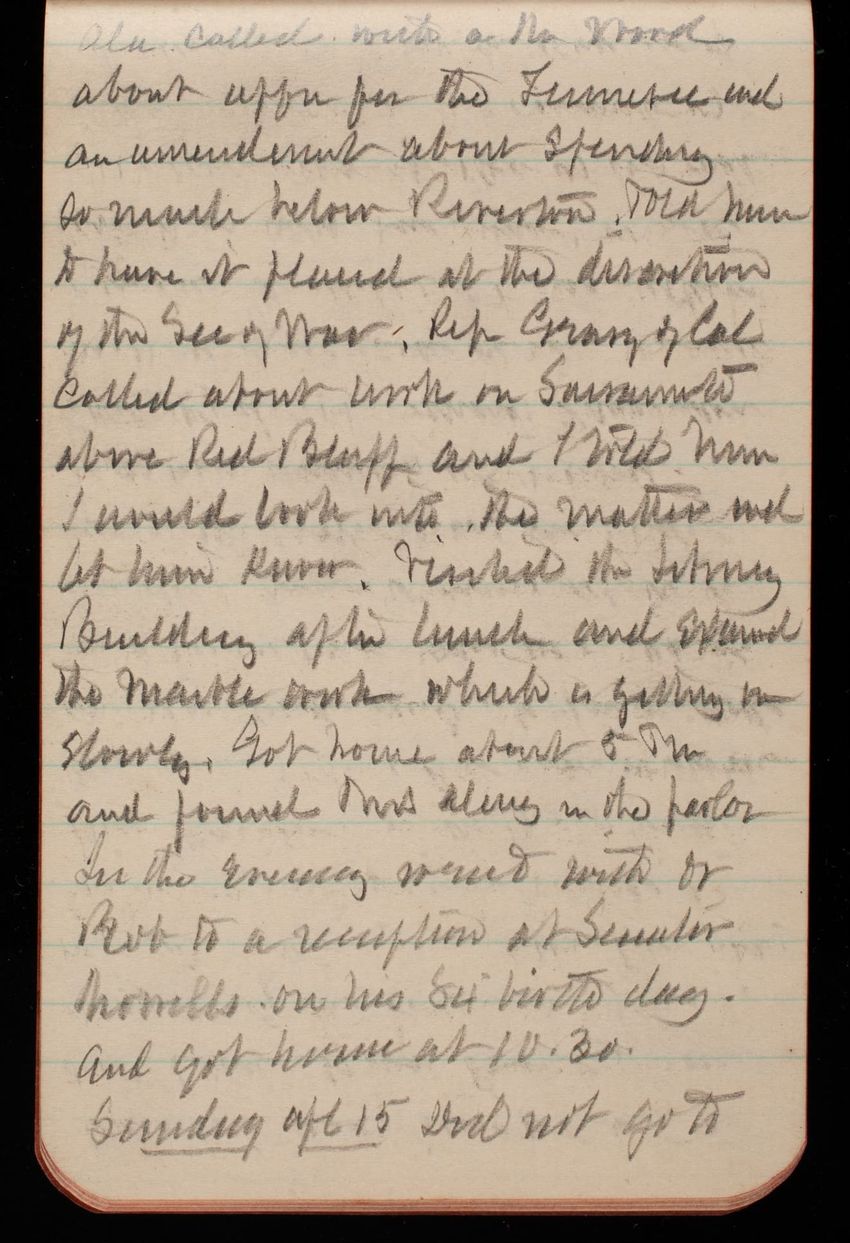 Ala called with a Mr Wood
about appr for the Tennessee and
an amendment about spending
so much below Riverton. Told him
to have it placed at the discretion
of the Sec of War, Rep Geary of Cal
called about work on Sacramento
above Red Bluff and I told him
I would look into the matter and
let him know. Visited the Library
Building after lunch and examd
the marble work which is getting on
slowly. Got home about 5 PM
and found in the parlor
In the evening went with Dr
Rob to a reception at Senator
Morrills on his birth day.
And got home at 10.30.
Sunday apl 15 Did not go to